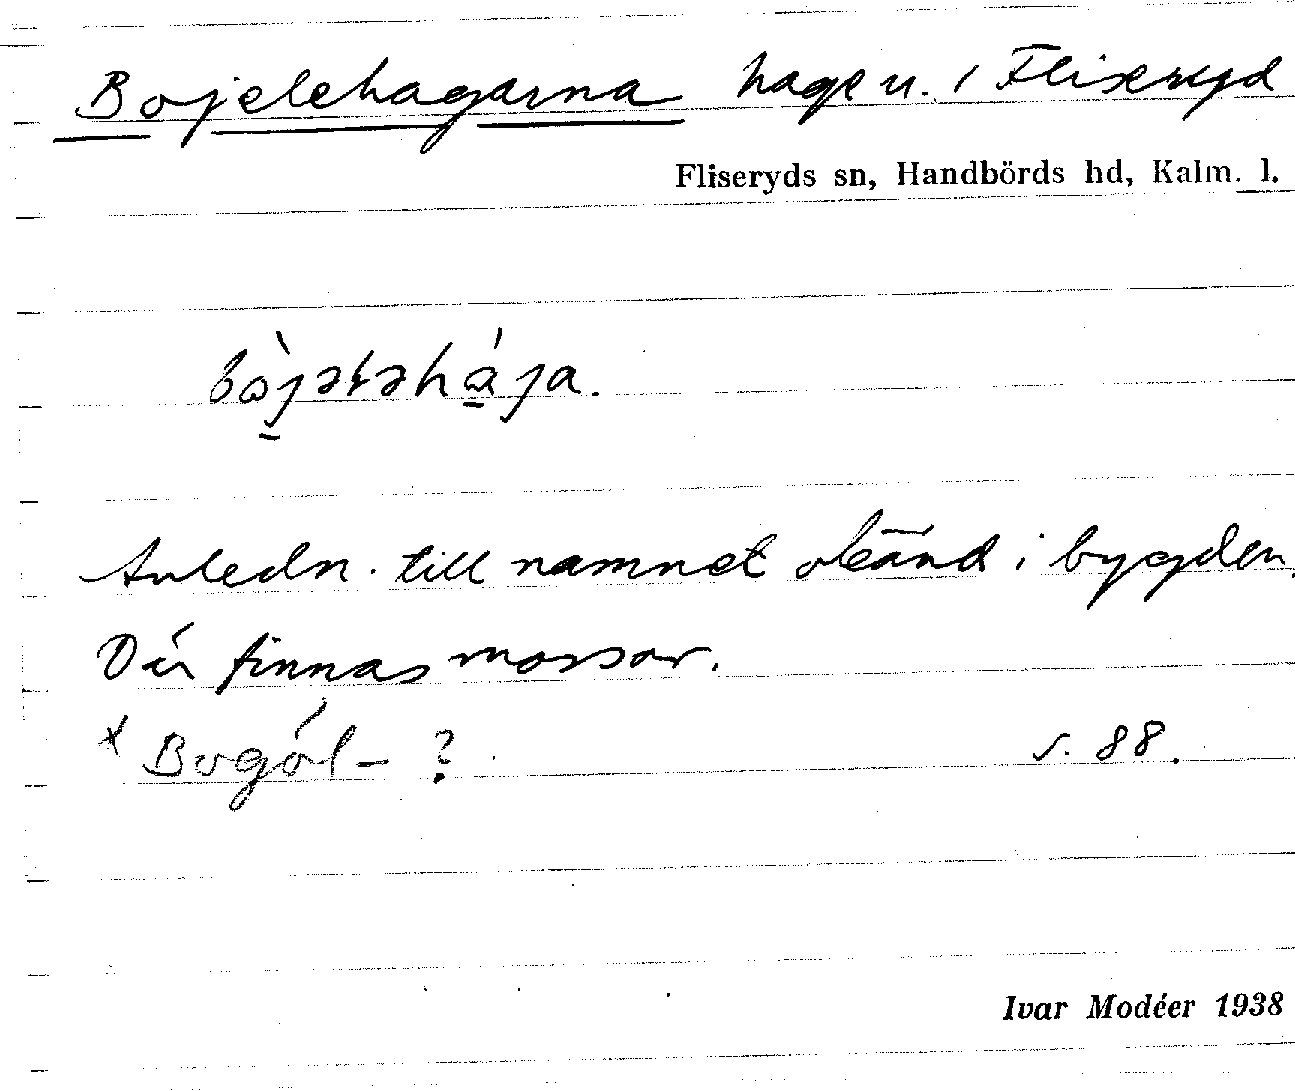 Bojelehagarna hage n. i Fliseryd
Fliseryds sn, Handbörds hd, Kalm. l.
bòjələhája.
Anledn. till namnet okänd i bygden.
Där finnas mossar.
* Bogól- ? s. 88.
Ivar Modéer 1938